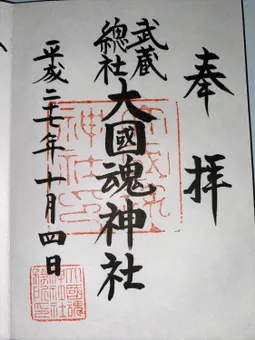 奉拝
武蔵
總社
大國魂神社
平成二十七年十月四日